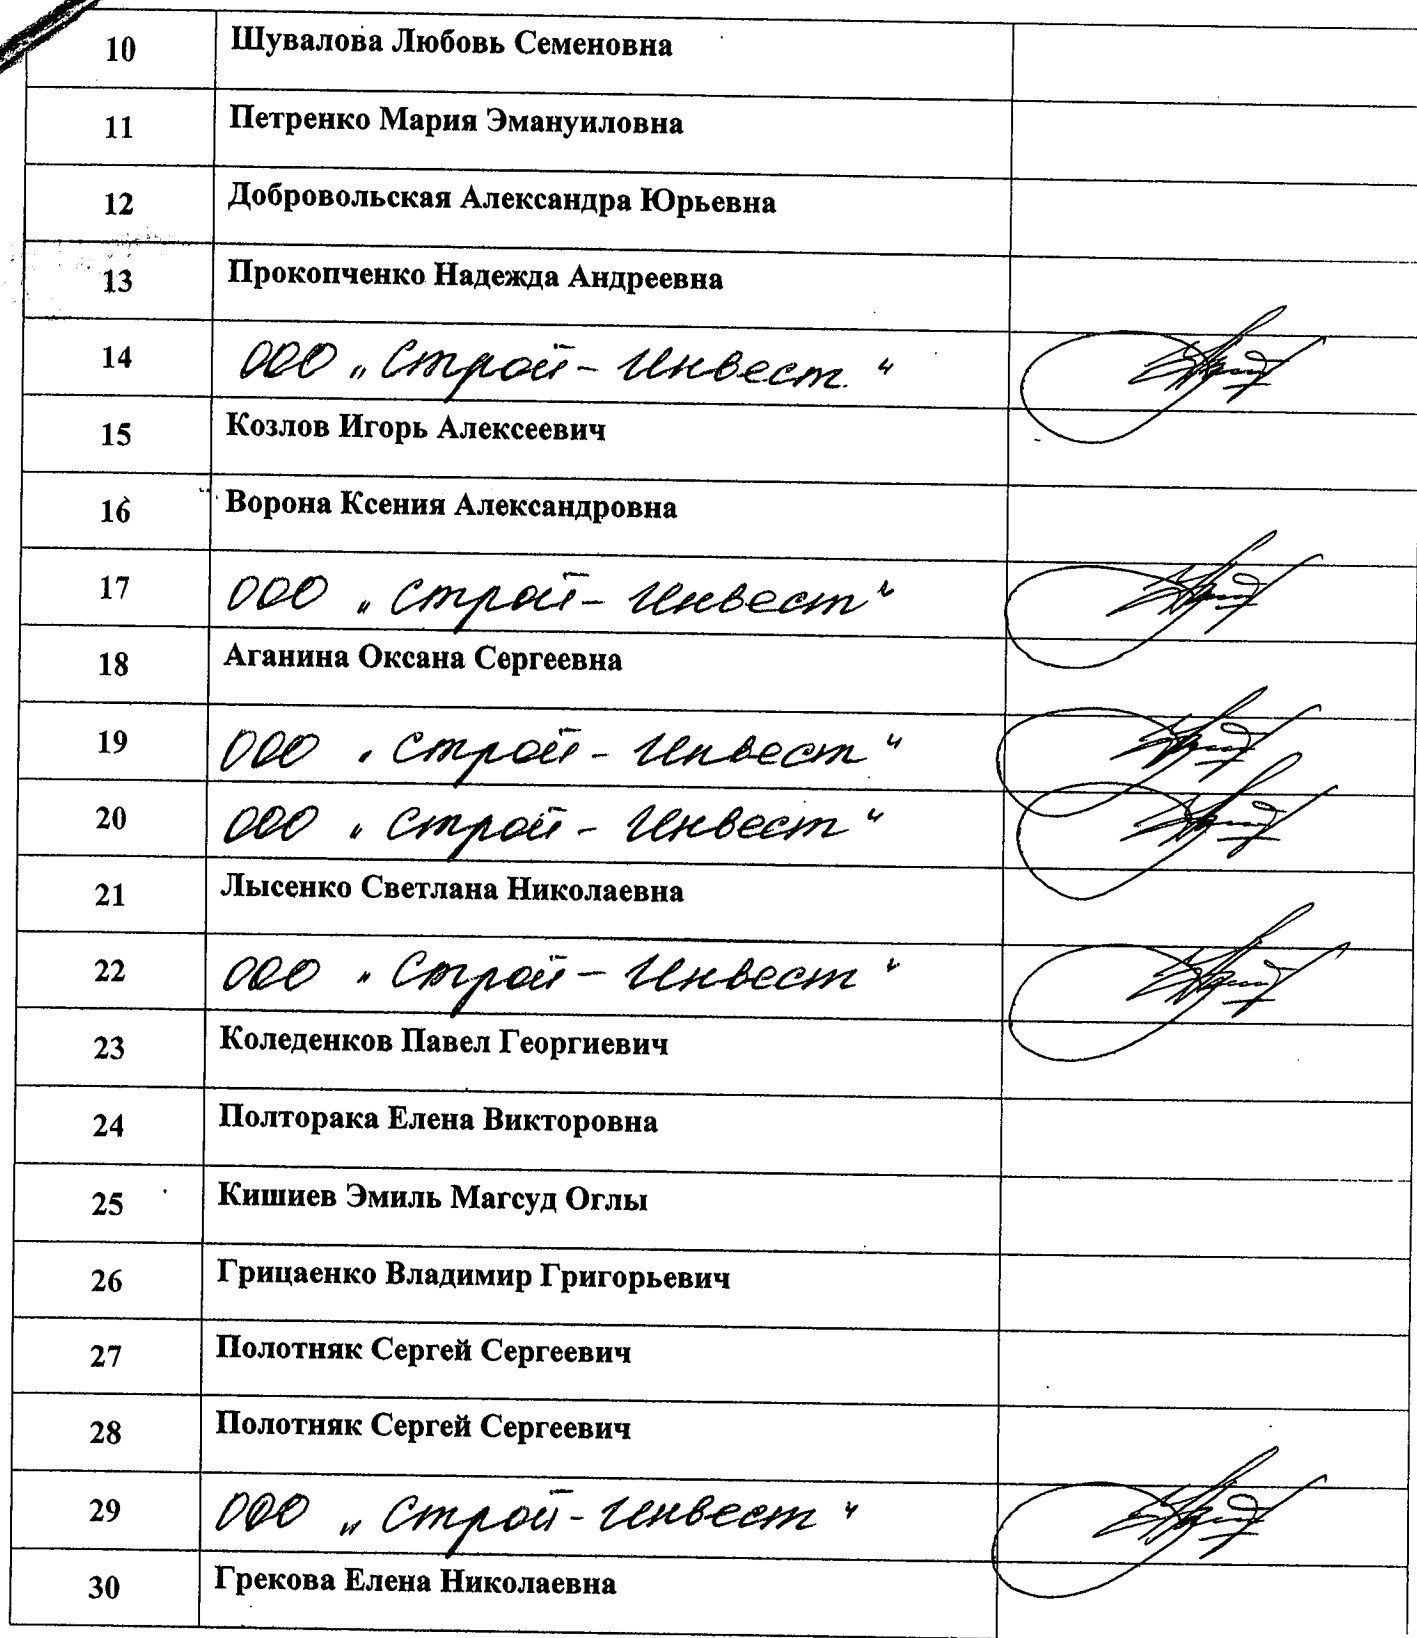 10 Шувалова Любовь Семеновна
11 Петренко Мария Эмануиловна
12 Добровольская Александра Юрьевна
13 Прокопченко Надежда Андреевна
14 ООО „Строй-Инвест"
15 Козлов Игорь Алексеевич
16 Ворона Ксения Александровна
17 ООО „Строй-Инвест"
18 Аганина Оксана Сергеевна
19 ООО „Строй-Инвест"
20 ООО „Строй-Инвест"
21 Лысенко Светлана Николаевна
22 ООО „Строй-Инвест"
23 Коледенков Павел Георгиевич
24 Полторака Елена Викторовна
25 Кишиев Эмиль Магсуд Оглы
26 Грицаенко Владимир Григорьевич
27 Полотняк Сергей Сергеевич
28 Полотняк Сергей Сергеевич
29 ООО „Строй-Инвест"
30 Грекова Елена Николаевна